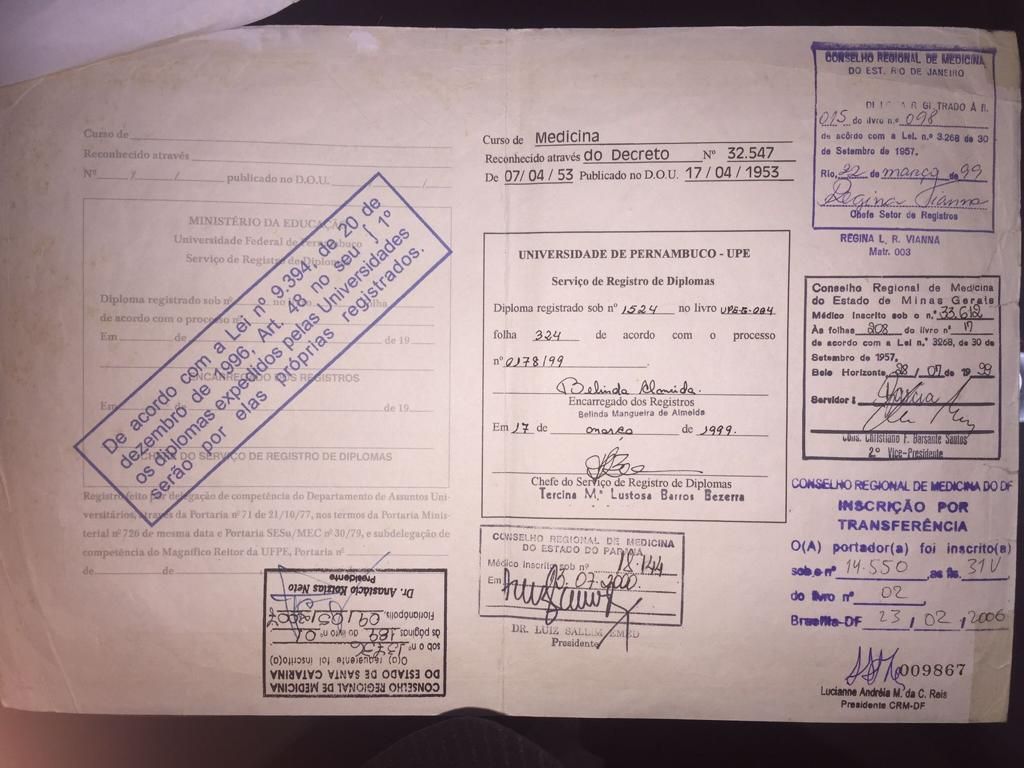 Curso de
Reconhecido através
Nº / / publicado no D.O.U. / /
MINISTÉRIO DA EDUCAÇÃO
Universidade Federal de Pernambuco
Serviço de Registro de Diplomas
Diploma registrado sob nº no livro folha
de acordo com o processo nº
Em de de 19
ENCARREGADO DOS REGISTROS
Em de de 19
CHEFE DO SERVIÇO DE REGISTRO DE DIPLOMAS
Registro feito por delegação de competência do Departamento de Assuntos Uni-
versitários, através da Portaria nº 71 de 21/10/77, nos termos da Portaria Minis-
terial nº 726 de mesma data e Portaria SESu/MEC nº 30/79, e subdelegação de
competência do Magnífico Reitor da UFPE, Portaria nº
de de
De acordo com a Lei nº 9.394, de 20 de
dezembro de 1996, Art. 48 no seu ∫ 1º
os diplomas expedidos pelas Universidades
serão por elas próprias registrados.
CONSELHO REGIONAL DE MEDICINA
DO ESTADO DE SANTA CATARINA
O(a) requerente foi inscrito(a)
sob o nº
às páginas 189 do livro nº
Florianópolis,
Dr. Anastácio Kotzias Neto
Presidente
Curso de Medicina
Reconhecido através do Decreto Nº 32.547
De 07/04/53 Publicado no D.O.U. 17/04/1953
UNIVERSIDADE DE PERNAMBUCO - UPE
Serviço de Registro de Diplomas
Diploma registrado sob nº 1524 no livro
folha 324 de acordo com o processo
nº 0178/99
Belinda Almeida.
Encarregado dos Registros
Belinda Mangueira de Almeida
Em 17 de março de 1999.
Chefe do Serviço de Registro de Diplomas
Tercina M.ª Lustosa Barros Bezerra
CONSELHO REGIONAL DE MEDICINA
DO ESTADO DO PARANÁ
Médico inscrito sob nº 18.144
Em 03.07.2000.
DR. LUIZ SALLIM EMED
Presidente
CONSELHO REGIONAL DE MEDICINA
DO EST. RIO DE JANEIRO
015 do livro n.º 098
de acôrdo com a Lei. n.º 3.268 de 30
de Setembro de 1957.
Rio, 22 de março de 99
Regina Vianna
Chefe Setor de Registros
REGINA L. R. VIANNA
Matr. 003
Conselho Regional de Medicina
do Estado de Minas Gerais
Médico Inscrito sob o n.º 33.612
Às folhas 208 do livro nº 17
de acordo com a Lei n.º 3268, de 30 de
Setembro de 1957.
Belo Horizonte, 28/07 de 1999
Servidor:
Cons. Christiano F. Barsante Santos
2º Vice-Presidente
CONSELHO REGIONAL DE MEDICINA DO DF
INSCRIÇÃO POR
TRANSFERÊNCIA
O(A) portador(a) foi inscrito(a)
sob o nº 14.550 as fls. 31V
do livro nº 02
Brasília-DF 23, 02, 2006
009867
Lucianne Andréia M. da C. Reis
Presidente CRM-DF